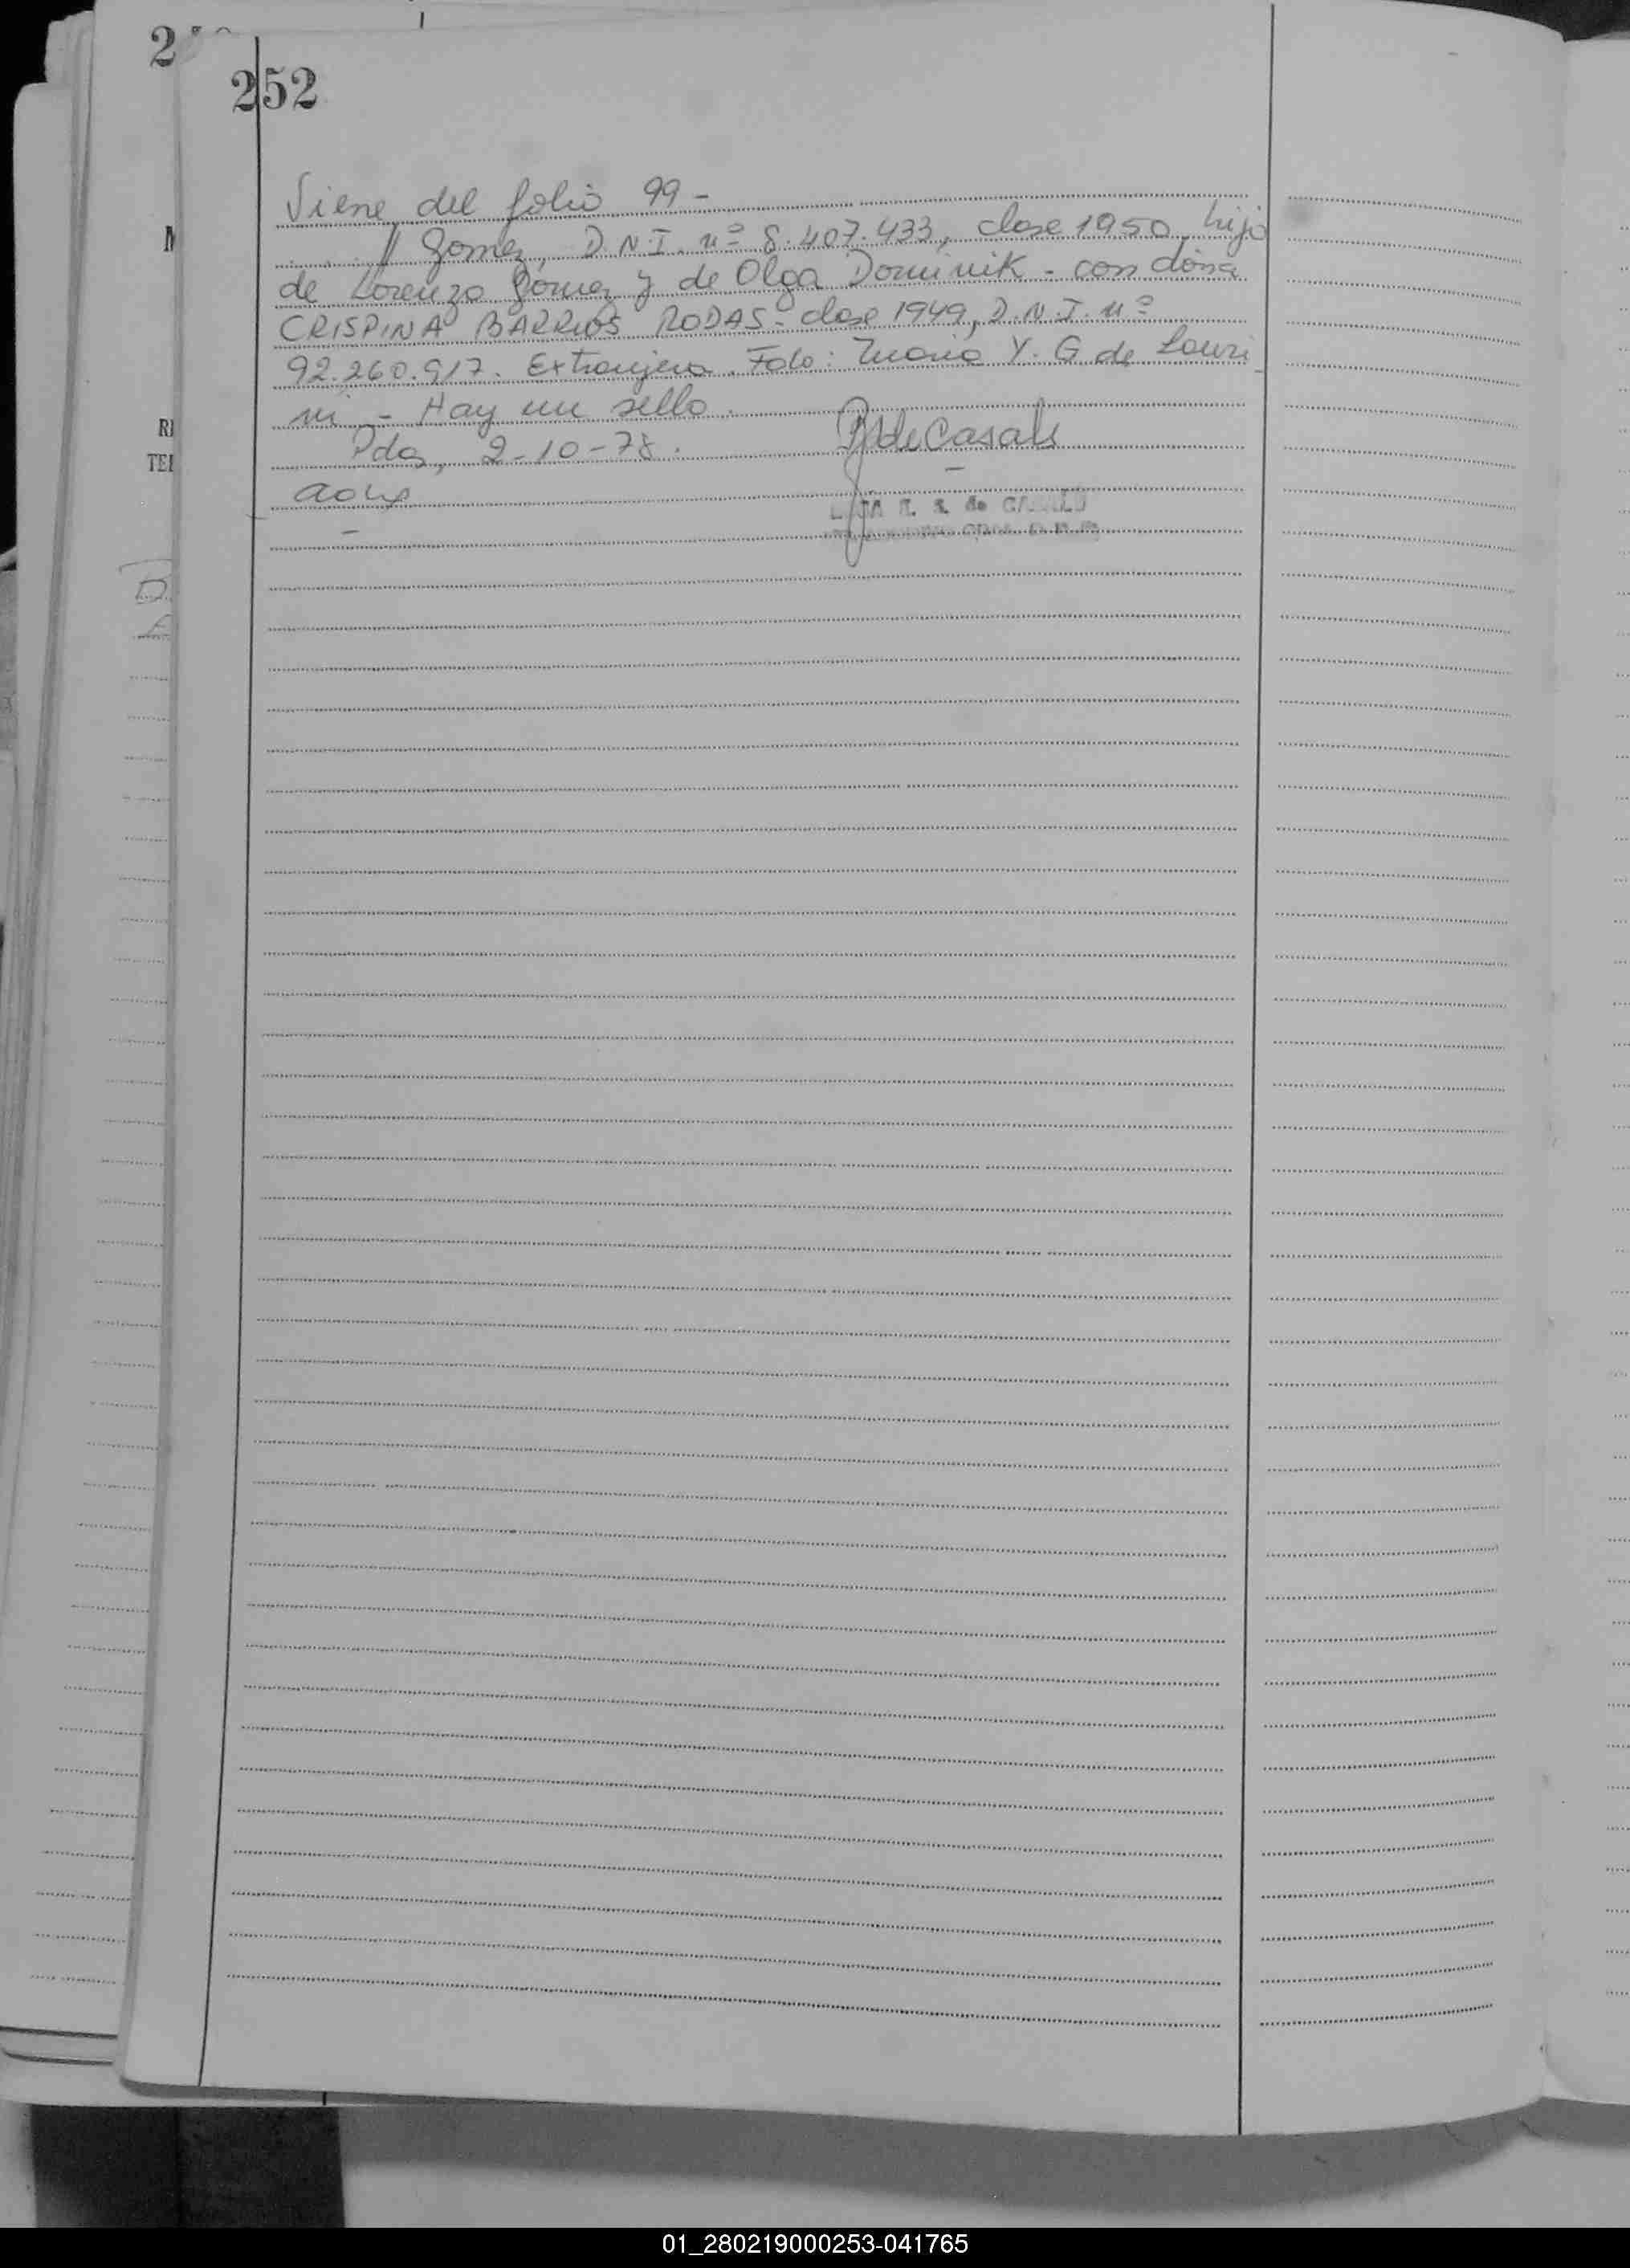 252
Viene del folio 99 -
// Gomez, D.N.I. nº 8.407.433, clase 1950, hijo
de Lorenzo Gómez y de Olga Dominik - con doña
CRISPINA BARRIOS RODAS - clase 1949, D.N.I. nº
92.260.917. Extranjera. Fdo: Maria Y. G de Louri
ni - Hay un sello.
Pdas, 2-10-78.
de Casals
R. S. de
01_280219000253-041765